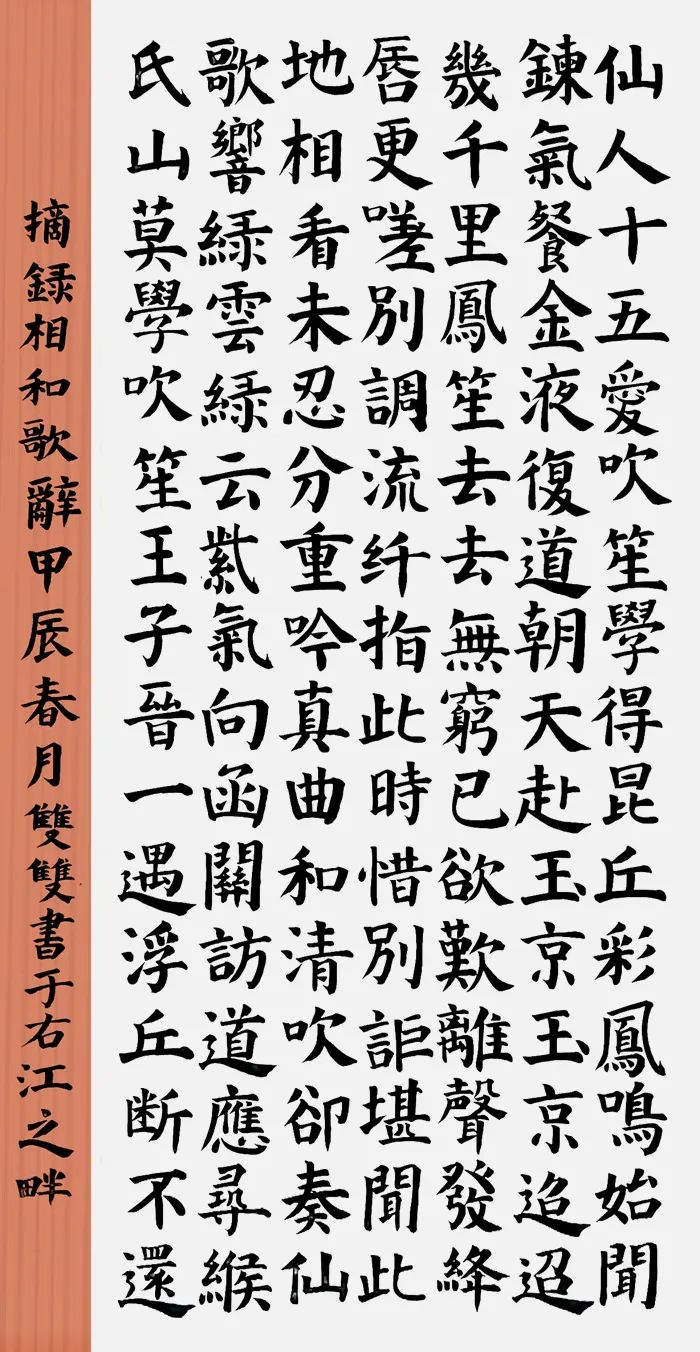 仙人十五愛吹笙學得昆丘彩鳳鳴始聞
鍊氣餐金液復道朝天赴玉京玉京迢迢
幾千里鳳笙去去無窮已欲歎離聲發絳
唇更嗟別調流纤指此時惜別詎堪聞此
地相看未忍分重吟真曲和清吹卻奏仙
歌響緑雲緑云紫氣向函關訪道應尋緱
氏山莫學吹笙王子晉一遇浮丘断不還
摘録相和歌辭甲辰春月雙雙書于右江之畔